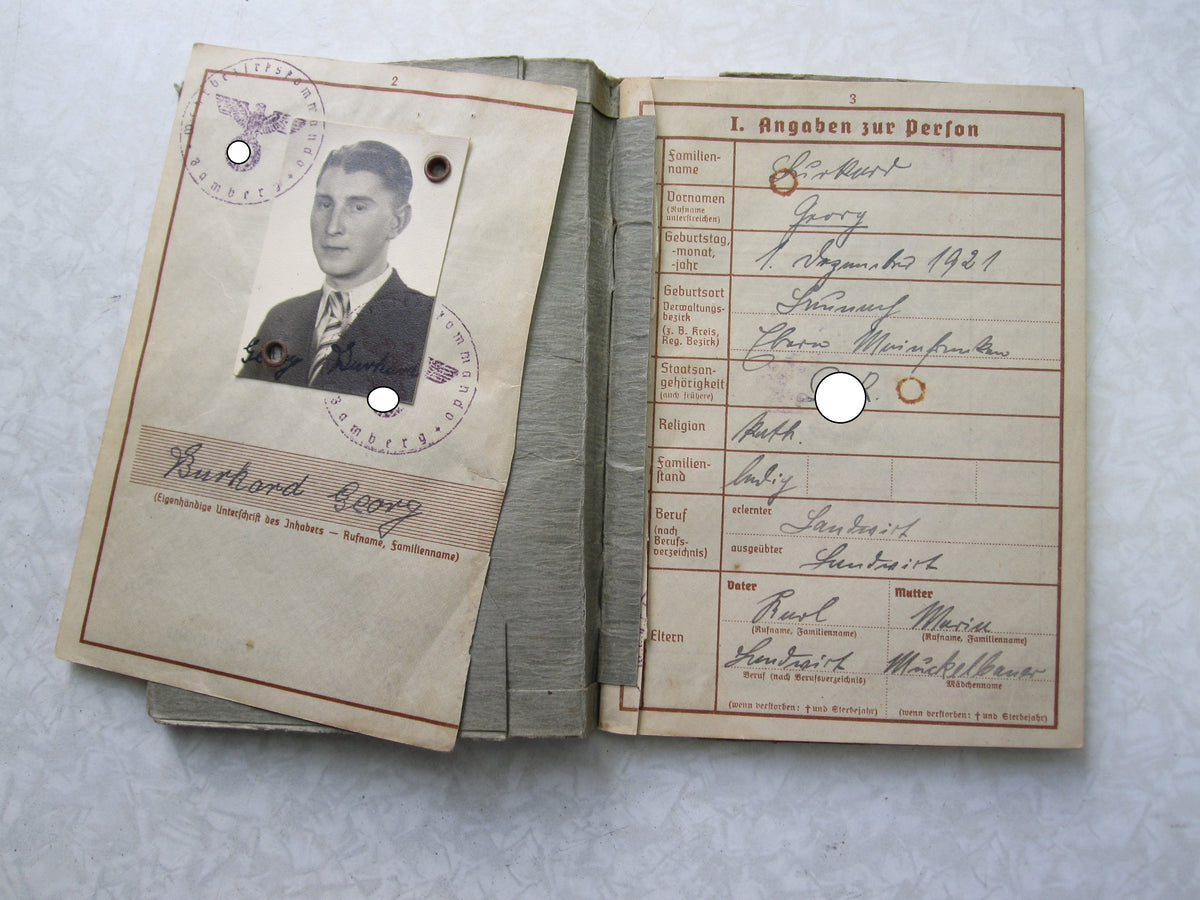 2
Wehrbezirkskommando
Bamberg
Georg Burkard
kommando
Bamberg
Burkard Georg
(Eigenhändige Unterschrift des Inhabers — Rufname, Familienname)
3
I. Angaben zur Person
Familien-
name
Burkard
Vornamen
(Rufname
unterstreichen)
Georg
Geburtstag,
-monat,
-jahr
1. Dezember 1921
Geburtsort
Verwaltungs-
bezirk
(z. B. Kreis,
Reg. Bezirk)
Ebern Mainfranken
Staatsan-
gehörigkeit
(auch frühere)
R.
Religion
kath.
Familien-
stand
ledig
Beruf
(nach
Berufs-
verzeichnis)
erlernter
Landwirt
ausgeübter
Landwirt
Eltern
Vater
Karl
(Rufname, Familienname)
Landwirt
Beruf (nach Berufsverzeichnis)
(wenn verstorben: † und Sterbejahr)
Mutter
Maria
(Rufname, Familienname)
Muckelbauer
Mädchenname
(wenn verstorben: † und Sterbejahr)